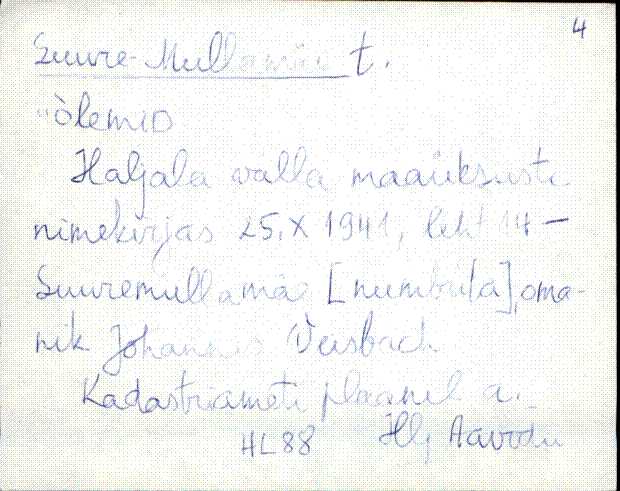 4
Suure-Mullamäe t.
Haljala valla maaüksuste
nimekirjas 25.X 1941, leht 14 -
Suuremullamäe [numbrita], oma-
nik Johannes
Kadastriameti plaanil a.
HL 88 Hlj Aavodu